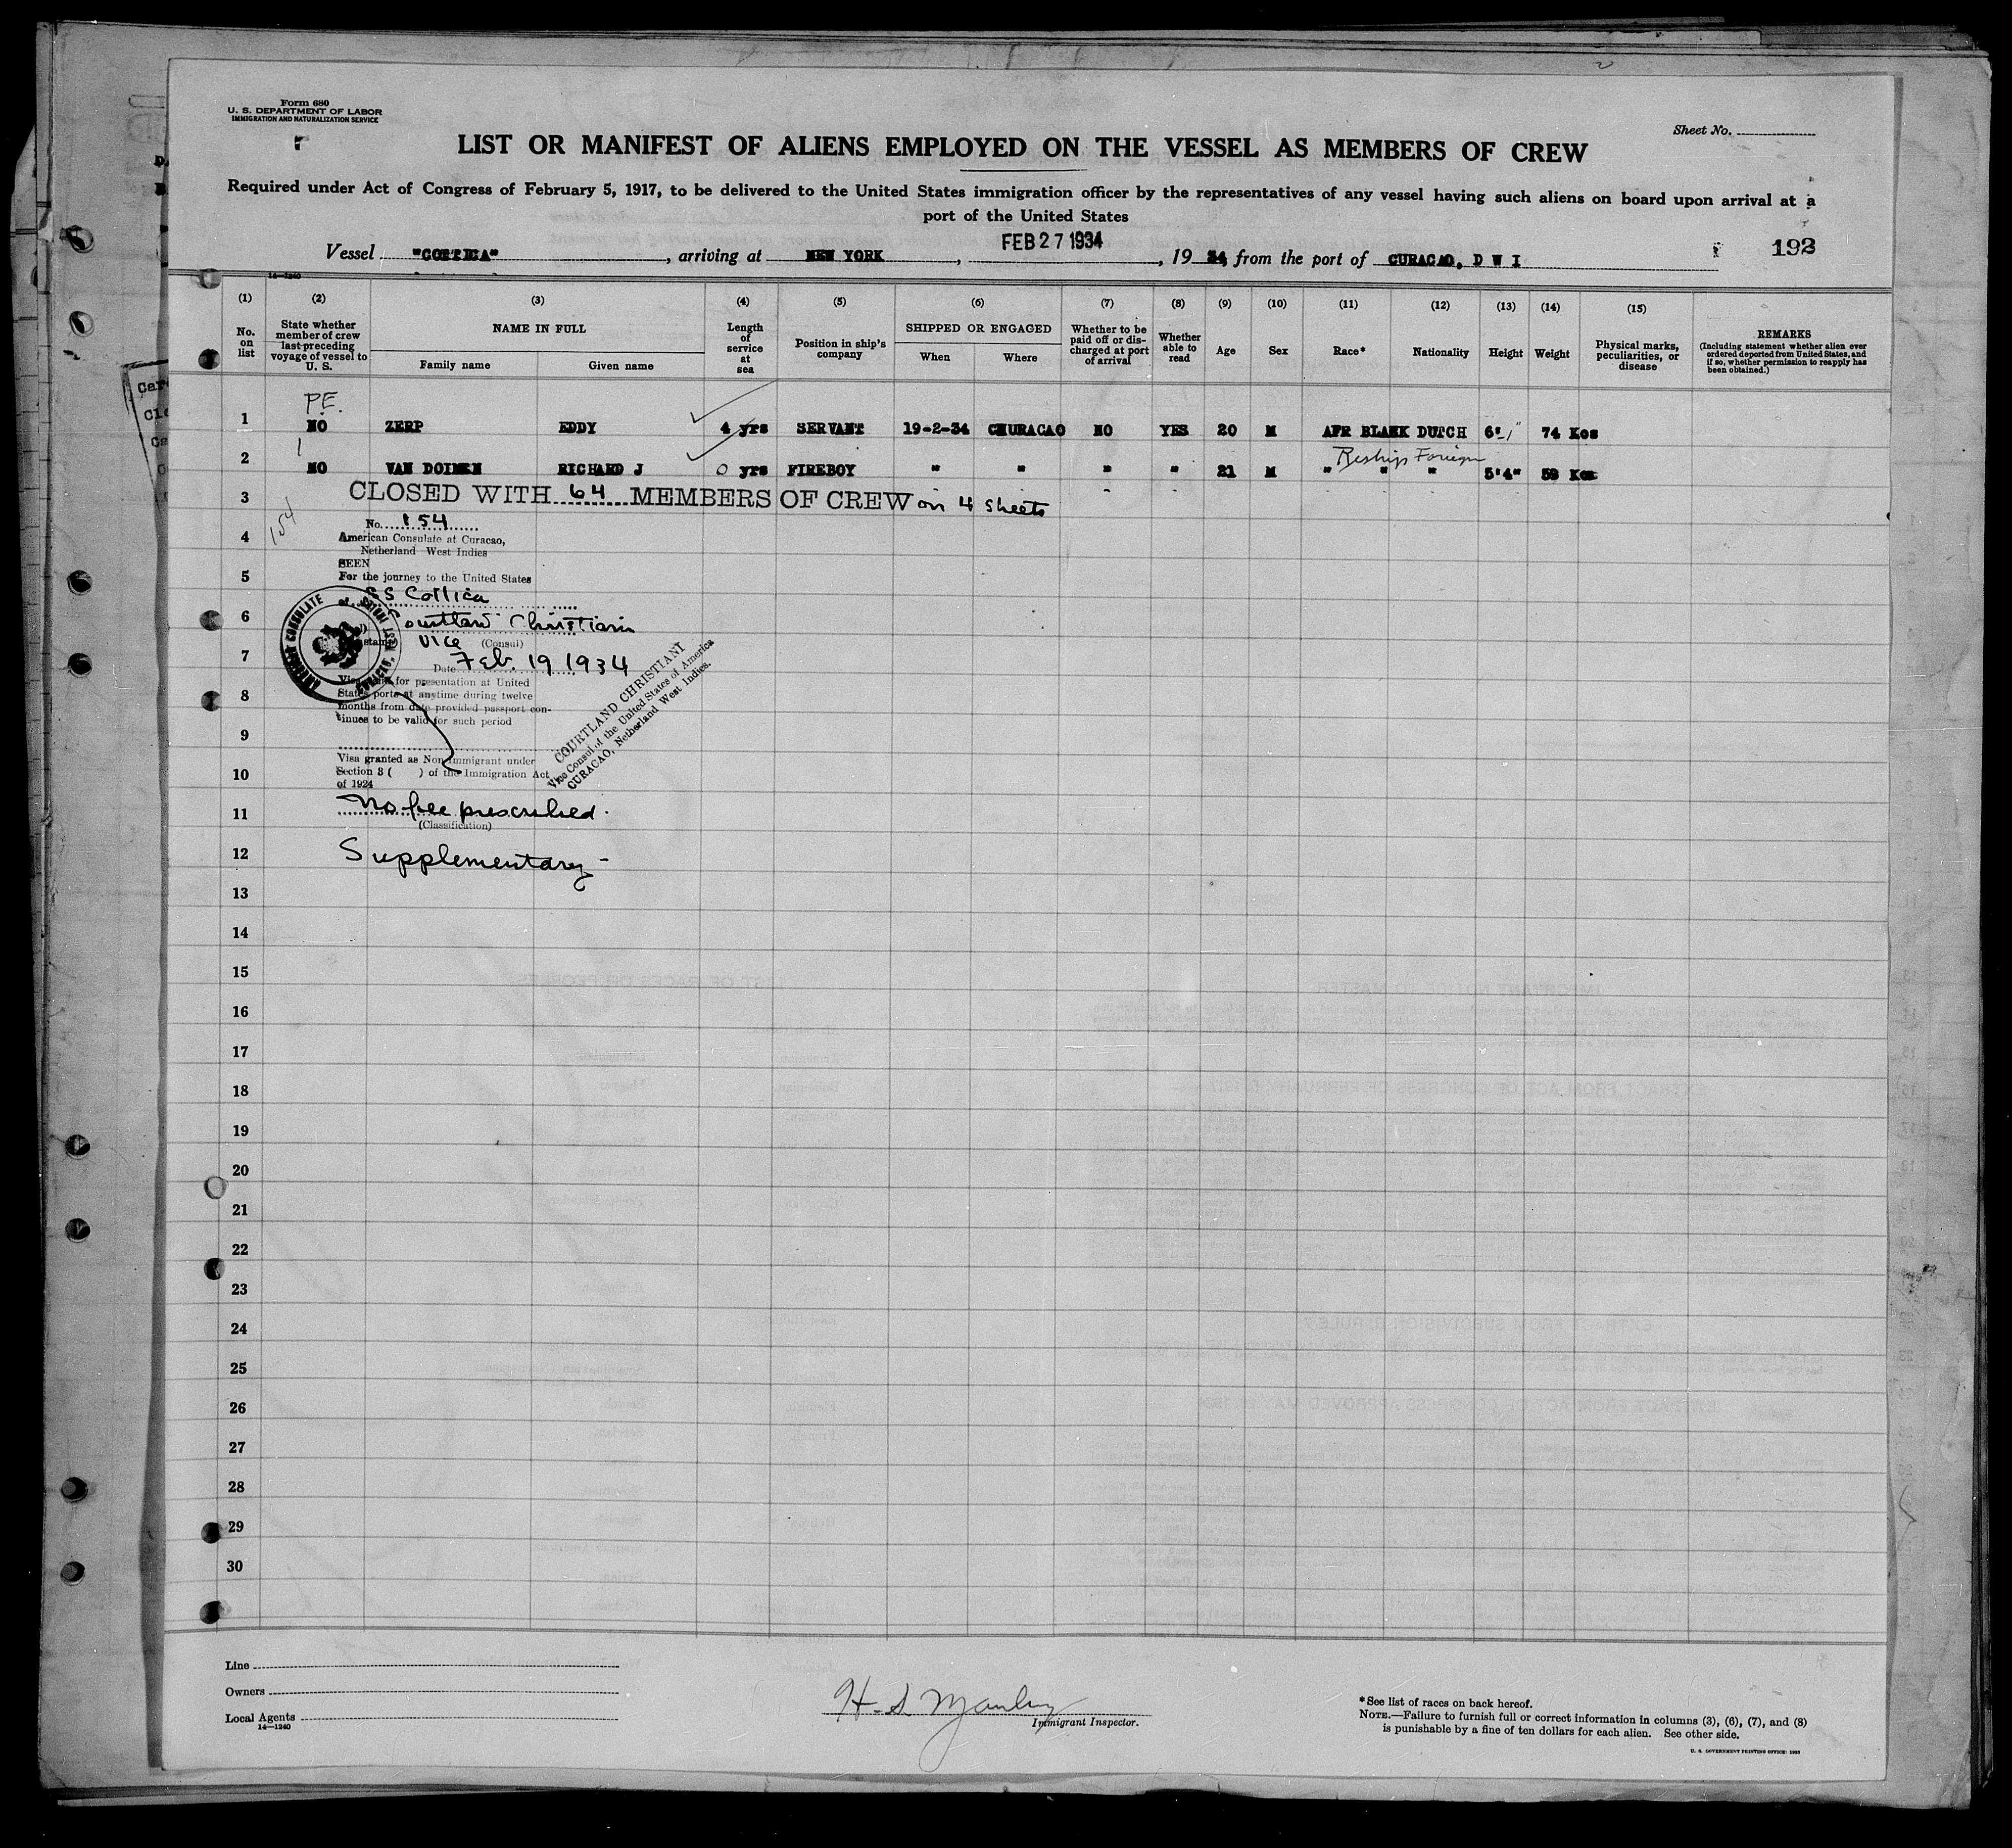 Form 680
U. S. DEPARTMENT OF LABOR
IMMIGRATION AND NATURALIZATION SERVICE
Sheet No.
LIST OR MANIFEST OF ALIENS EMPLOYED ON THE VESSEL AS MEMBERS OF CREW
Required under Act of Congress of February 5, 1917, to be delivered to the United States immigration officer by the representatives of any vessel having such aliens on board upon arrival at a
port of the United States
FEB 27 1934
Vessel "COTTICA", arriving at NEW YORK, , 19 34, from the port of CURACAO, D W I
192
14-1240
(1) (2) (3) (4) (5) (6) (7) (8) (9) (10) (11) (12) (13) (14) (15)
No. on list
State whether member of crew last preceding voyage of vessel to U. S.
NAME IN FULL
Family name
Given name
Length of service at sea
Position in ship's company
SHIPPED OR ENGAGED
When
Where
Whether to be paid off or discharged at port of arrival
Whether able to read
Age
Sex
Race*
Nationality
Height
Weight
Physical marks, peculiarities, or disease
REMARKS
(Including statement whether alien ever ordered deported from United States, and if so, whether permission to reapply has been obtained.)
P.E.
1 NO ZERP EDDY 4 yrs SERVANT 19-2-34 CHURACAO NO YES 20 M AFR BLAKK DUTCH 6' 1" 74 Kos
1
Reships Foreign
2 NO VAN RICHARD J 0 yrs FIREBOY " " " " 21 M " " " 5'4" 59 Kos
3 CLOSED WITH 64 MEMBERS OF CREW on 4 sheets
154
No. 154
4 American Consulate at Curacao,
Netherland West Indies
SEEN
5 For the journey to the United States
SS Cottica
AMERICAN CONSULATE
CURACAO, WEST INDIES
6 Courtland Christiani
Vice (Consul)
7 Date Feb. 19 1934
Visa for presentation at United
8 States ports at anytime during twelve
months from date provided passport con-
tinues to be valid for such period
9
COURTLAND CHRISTIANI
Vice Consul of the United States of America
CURACAO, Netherland West Indies.
Visa granted as Non Immigrant under
10 Section 3 ( ) of the Immigration Act
of 1924
11 No fee prescribed.
(Classification)
12 Supplementary -
13
14
15
16
17
18
19
20
21
22
23
24
25
26
27
28
29
30
Line
Owners
Local Agents
14-1240
H. S. Manley
Immigrant Inspector.
*See list of races on back hereof.
NOTE.—Failure to furnish full or correct information in columns (3), (6), (7), and (8)
is punishable by a fine of ten dollars for each alien. See other side.
U. S. GOVERNMENT PRINTING OFFICE: 1933